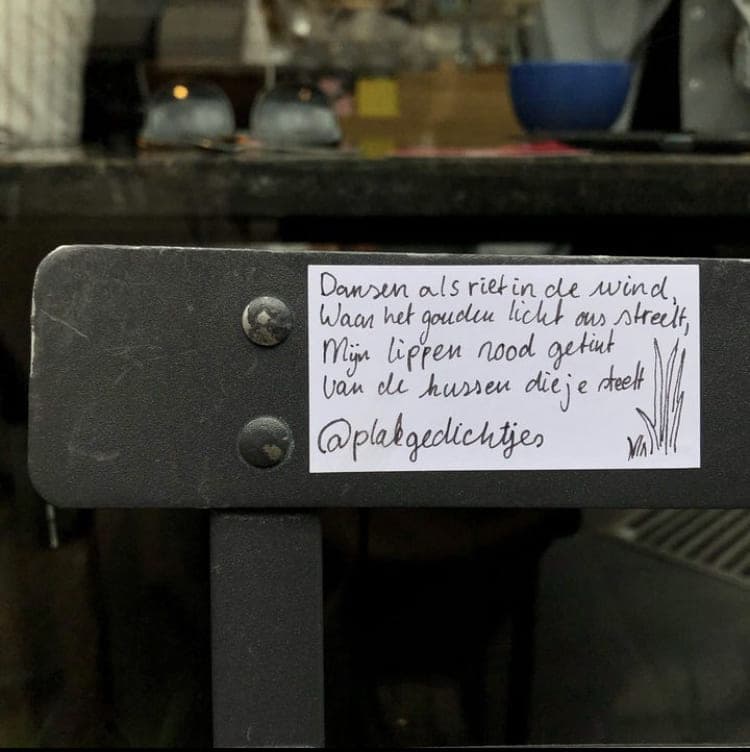 Dansen als riet in de wind,
Waar het gouden licht ons streelt,
Mijn lippen rood getint
van de kussen die je steelt
@plakgedichtjes